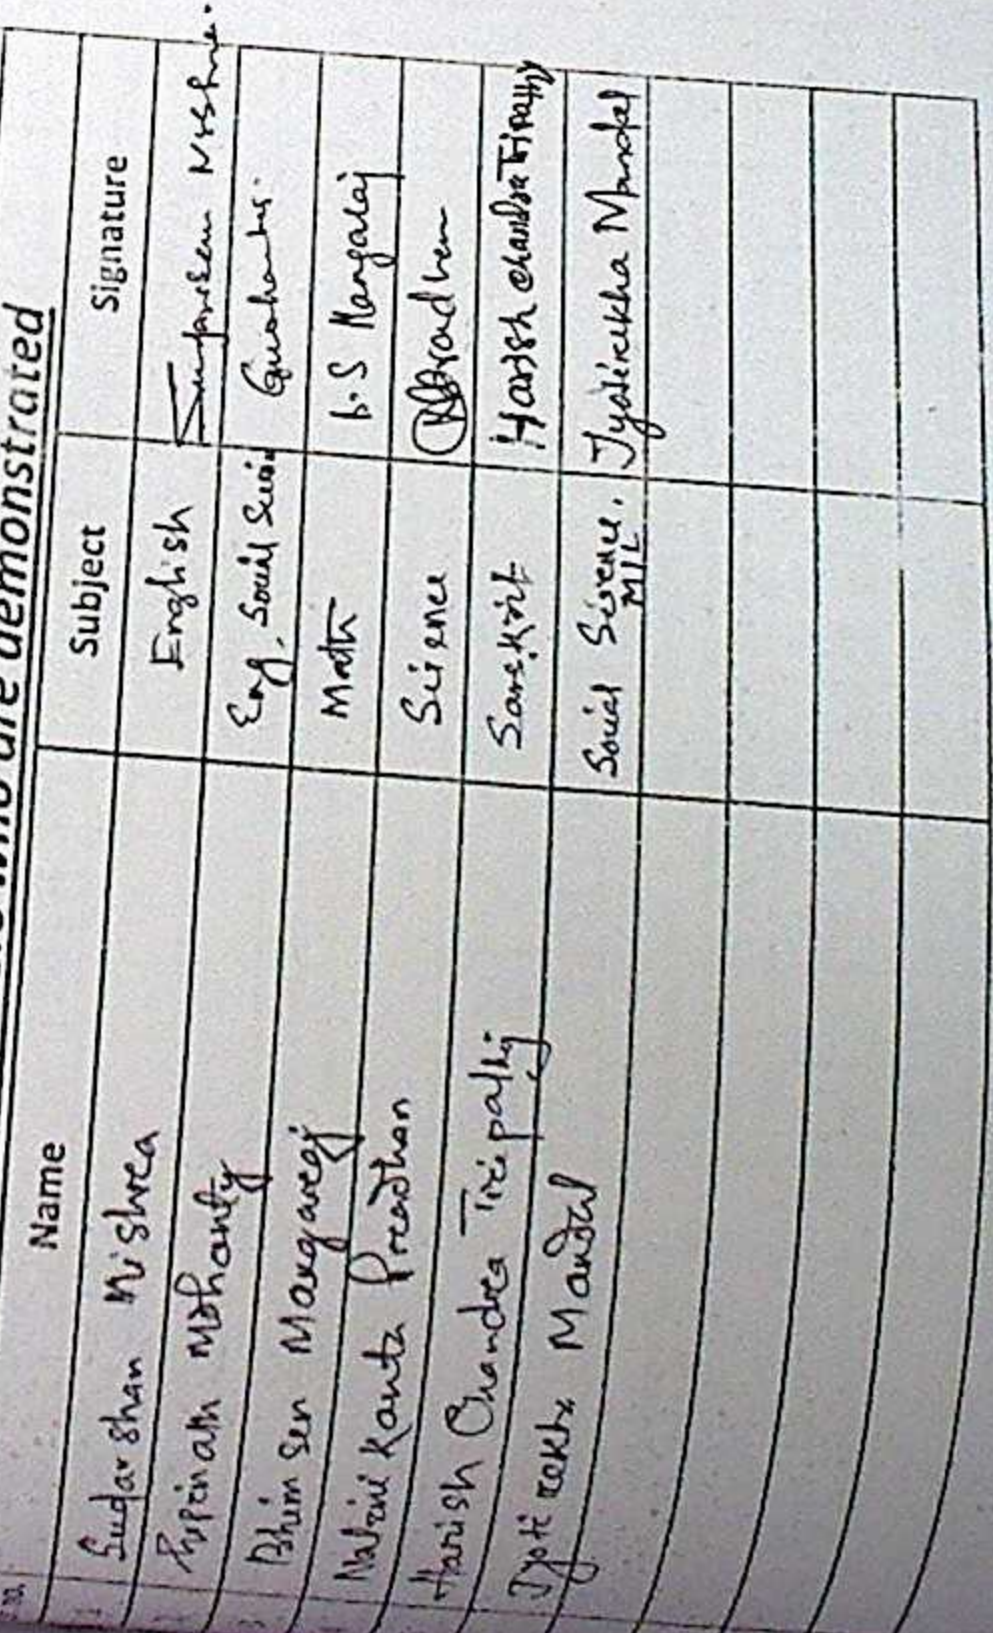 who are demonstrated
Name Subject Signature
Sudarshan Mishra English
Mohanty Eng, Social
Bhim Sen Mangaraj Math B.S Mangaraj
Nalini Kanta Pradhan Science Pradhan
Harish Chandra Tripathy Sanskrit Harish chandra Tripathy
Jyoti rekha Mandal Social Science, MIL Jyotirekha Mandal